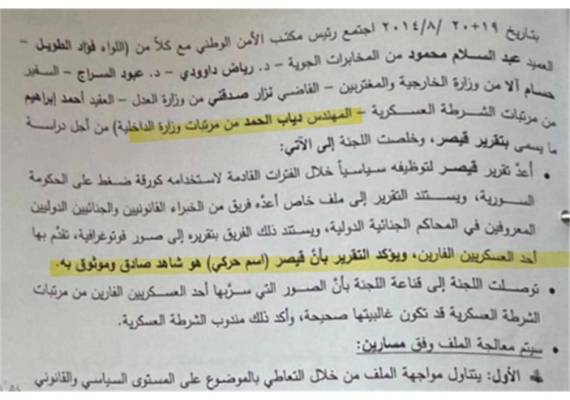 بتاريخ ١٩+٢٠ /٢٠١٤/٨ اجتمع رئيس مكتب الأمن الوطني مع كلاً من (اللواء فؤاد الطويل –
العميد عبد السلام محمود من المخابرات الجوية – د. رياض داوودي – د. عبود السراج – السفير
حسام آلا من وزارة الخارجية والمغتربين – القاضي نزار صدقني من وزارة العدل – العقيد أحمد إبراهيم
من مرتبات الشرطة العسكرية – المهندس دياب الحمد من مرتبات وزارة الداخلية) من أجل دراسة
ما يسمى بتقرير قيصر، وخلصت اللجنة إلى الآتي:
• أعدَّ تقرير قيصر لتوظيفه سياسياً خلال الفترات القادمة لاستخدامه كورقة ضغط على الحكومة
السورية، ويستند التقرير إلى ملف خاص أعدَّه فريق من الخبراء القانونيين والجنائيين الدوليين
المعروفين في المحاكم الجنائية الدولية، ويستند ذلك الفريق بتقريره إلى صور فوتوغرافية، تقدَّم بها
أحد العسكريين الفارين، ويؤكد التقرير بأنَّ قيصر (اسم حركي) هو شاهد صادق وموثوق به.
• توصلت اللجنة إلى قناعة اللجنة بأنَّ الصور التي سرَّبها أحد العسكريين الفارين من مرتبات
الشرطة العسكرية قد تكون غالبيتها صحيحة، وأكد ذلك مندوب الشرطة العسكرية.
• سيتم معالجة الملف وفق مسارين:
الأول: يتناول مواجهة الملف من خلال التعاطي بالموضوع على المستوى السياسي والقانوني